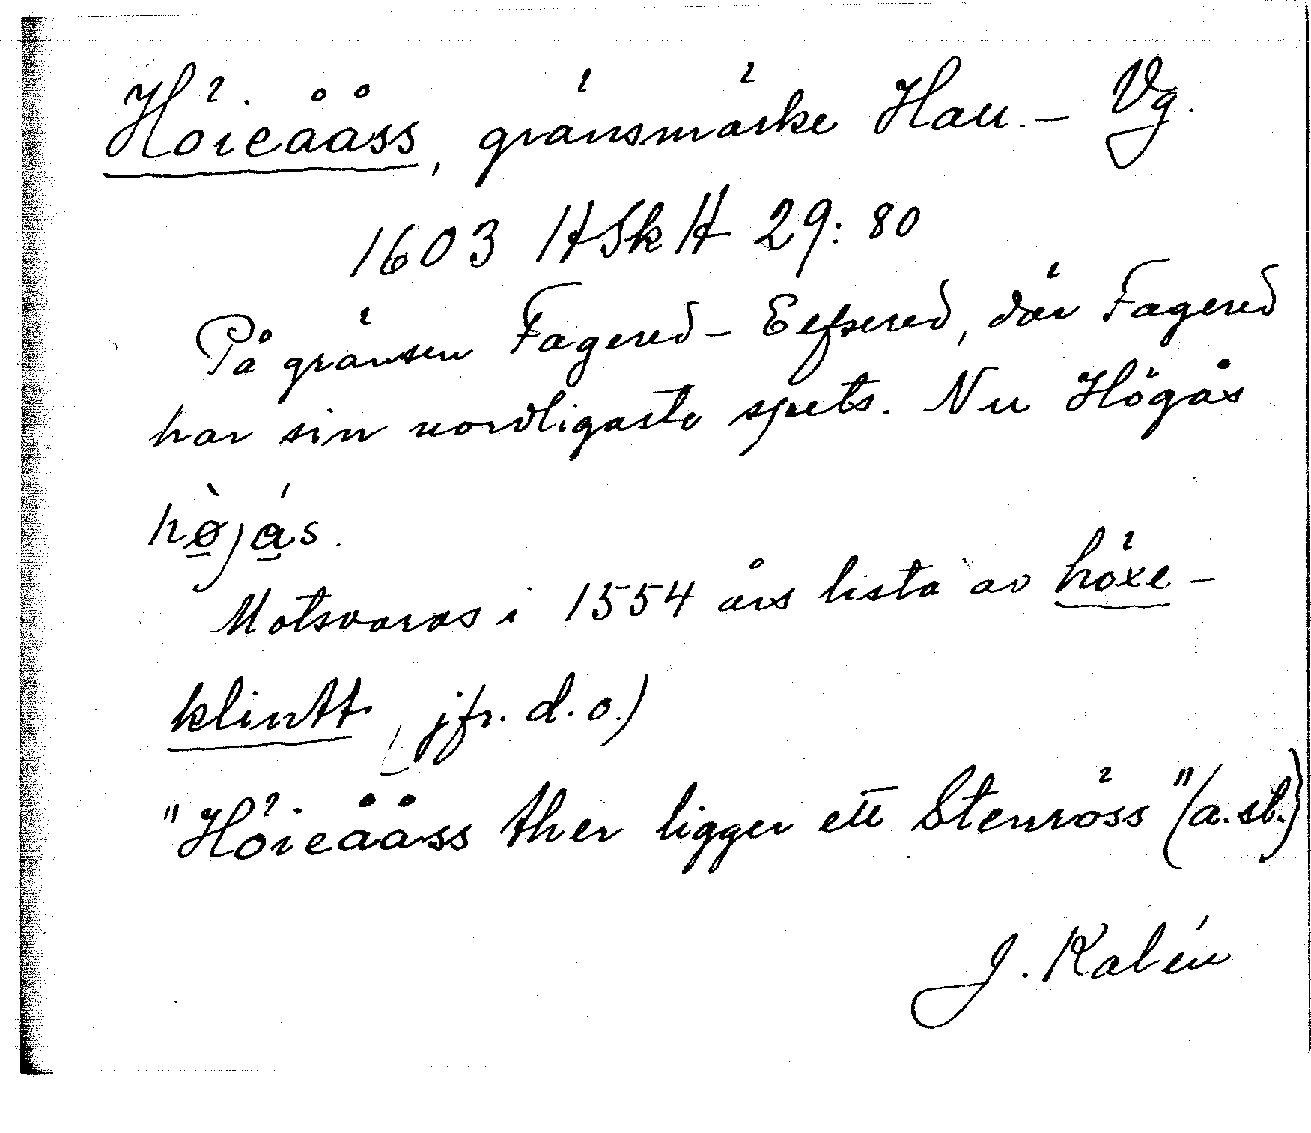 Höieååss, gränsmärke Hall.- Vg.
1603 HSkH 29: 80
På gränsen Fagered - Elfsered, där Fagered
har sin nordligaste spets. Nu Högås
hø̀jás.
Motsvaras i 1554 års lista av höxe-
klintt, jfr. d.o.)
"Höieååss ther ligger ett Stenröss" (a.st.)
J. Kalén